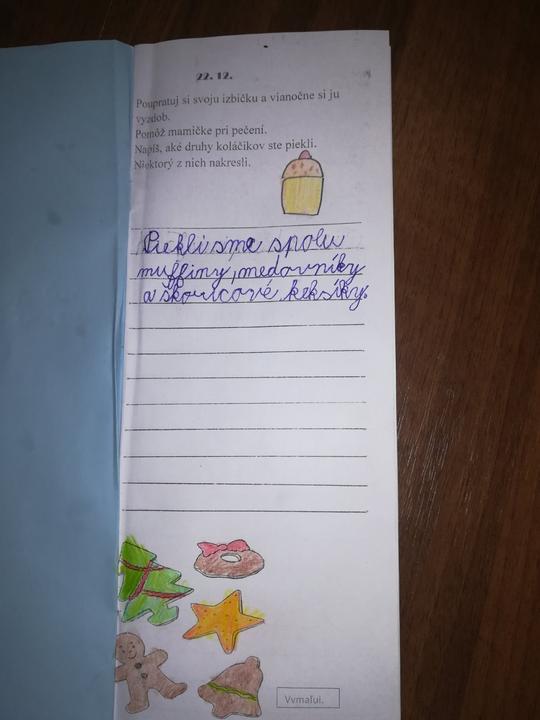 22. 12.
Poupratuj si svoju izbičku a vianočne si ju
vyzdob.
Pomôž mamičke pri pečení.
Napíš, aké druhy koláčikov ste piekli.
Niektorý z nich nakresli.
Piekli sme spolu
muffiny, medovníky
a škoricové keksíky.
Vymaľuj.